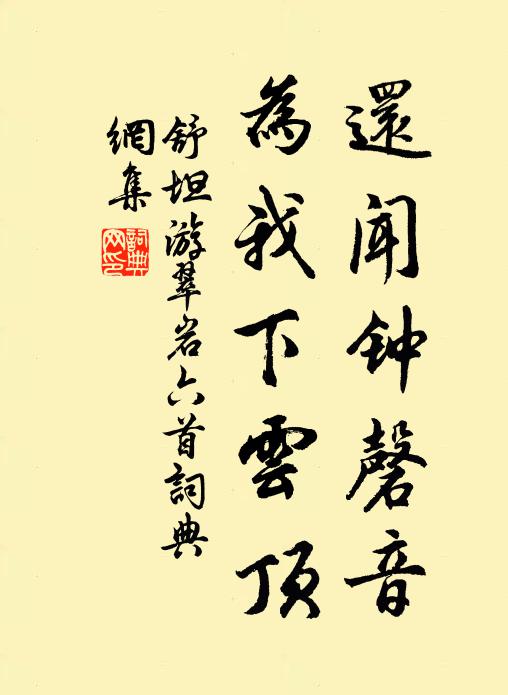 還闻钟磬音
為我下雲頂
舒坦游翠岩六首詞典
網集
詞典网印